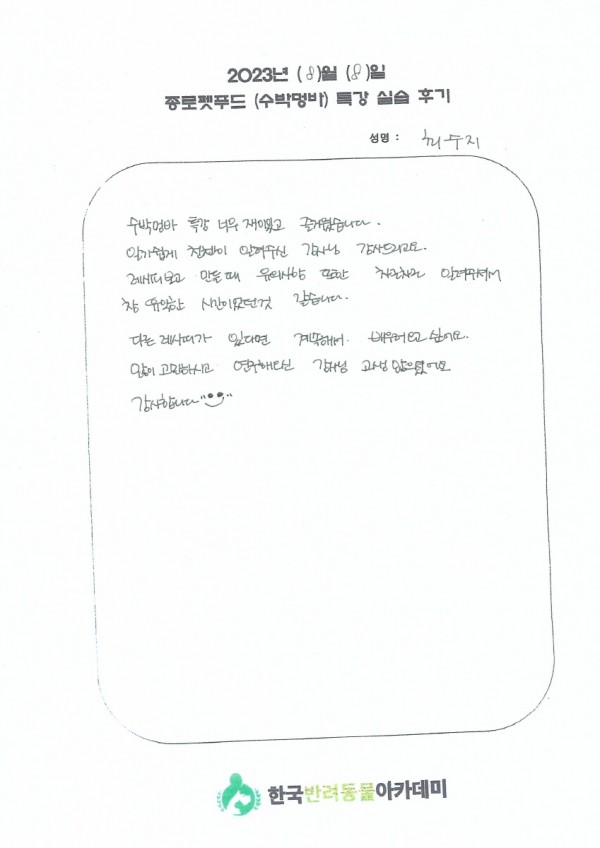 2023년 (8)월 (8)일
종로펫푸드 (수박멍바) 특강 실습 후기
성명 : 최수지
수박멍바 특강 너무 재미있고 즐거웠습니다.
알기쉽게 천천히 알려주신 강사님 감사드리고요.
레시피보고 만들때 유의사항 또한 차근차근 알려주셔서
참 유익한 시간이었던것 같습니다.
다른 레시피가 있다면 계속해서 배우러오고 싶어요.
많이 고민하시고 연구해주신 강사님 고생 많으셨어요
감사합니다"
한국반려동물아카데미